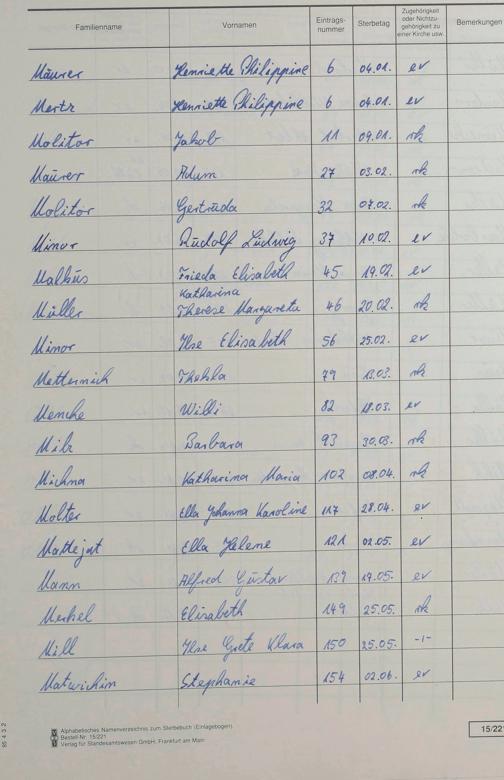 Familienname Vornamen Eintrags-nummer Sterbetag Zugehörigkeit oder Nichtzu-gehörigkeit zu einer Kirche usw. Bemerkungen
Mäurer Henriette Philippine 6 04.01. ev
Mertz Henriette Philippine 6 04.01. ev
Molitor Jakob 11 09.01. rk
Mäurer Adam 27 03.02. rk
Molitor Gertruda 32 07.02. rk
Minor Rudolf Ludwig 37 10.02. ev
Malkus Frieda Elisabeth 45 19.02. ev
Katharina
Müller Therese Margareta 46 20.02. rk
Minor Ilse Elisabeth 56 25.02. ev
Metternich Thekla 79 13.03. rk
Mencke Willi 82 18.03. ev
Milz Barbara 93 30.03. rk
Michna Katharina Maria 102 08.04. rk
Molter Ella Johanna Karoline 117 28.04. ev
Mattejat Ella Helene 121 02.05. ev
Mann Alfred Gustav 139 19.05. ev
Merkel Elisabeth 149 25.05. rk
Mill Ilse Grete Klara 150 25.05. -1-
Matwichin Stephanie 154 02.06. ev
Alphabetisches Namenverzeichnis zum Sterbebuch (Einlagebogen)
Bestell-Nr. 15/221
Verlag für Standesamtswesen GmbH, Frankfurt am Main
15/221